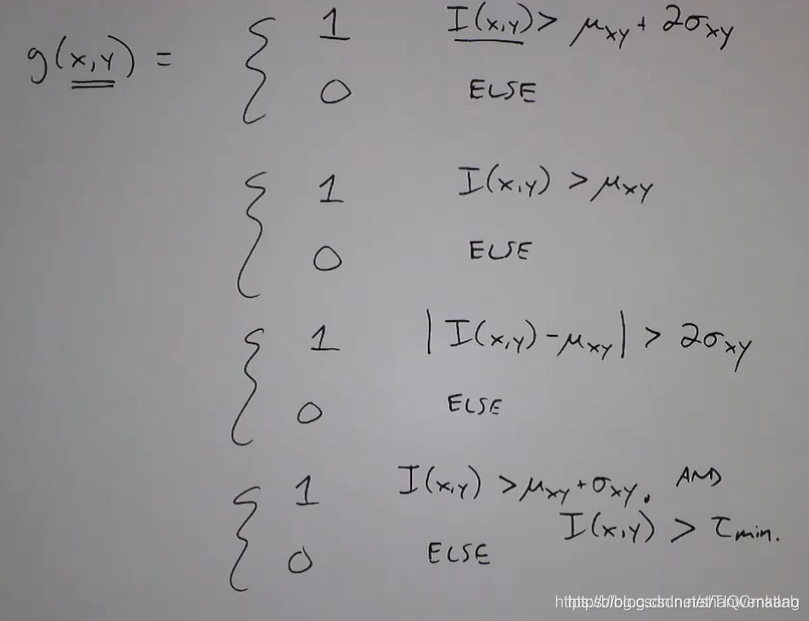 g(x,y) = { 1 I(x,y) > μxy + 2σxy
0 ELSE
{ 1 I(x,y) > μxy
0 ELSE
{ 1 |I(x,y) - μxy| > 2σxy
0 ELSE
{ 1 I(x,y) > μxy + σxy. AND
I(x,y) > τmin.
0 ELSE